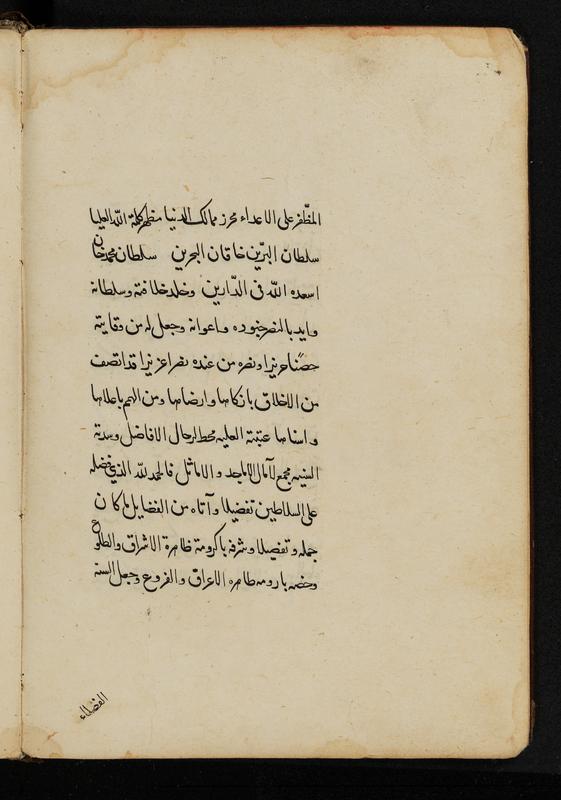 المظفر على الاعداء محرز ممالك الدنيا مظهر كلمة الله العليا
سلطان البرّين خاقان البحرين سلطان محمد خان
اسعده الله فى الدّارين وخلد خلافته وسلطانه
وايد بالنصر جنوده واعوانه وجعل له من وقايته
حصنًا حريزا ونصره من عنده نصرا عزيزا قد اتصف
من الاخلاق بازكاها وارضاها ومن الهمم باعلاها
واسناها عتبته العليه محط لرحال الافاضل وسدته
السنيه مجمع لآمال الاماجد والاماثل فالحمد لله الذي فضله
على السلاطين تفضيلا وآتاه من الفضايل ما كان
جملة وتفصيلا وشرفه باكرومة ظاهرة الاشراق والطلوع
وخصه بارومه طاهره الاعراق والفروع وجعل السنه
الفضلاء